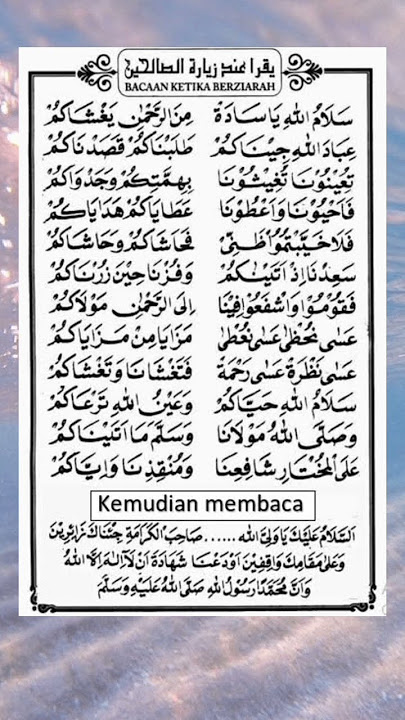 يقرا عند زيارة الصالحين
BACAAN KETIKA BERZIARAH
سَلَامُ اللهِ يَا سَادَةْ مِنَ الرَّحْمٰنِ يَغْشَاكُمْ
عِبَادَ اللهِ جِيْنَاكُمْ قَصَدْنَاكُمْ طَلَبْنَاكُمْ
تُعِيْنُوْنَا تُغِيْثُوْنَا بِهِمَّتِكُمْ وَجَدْوَاكُمْ
فَاَحْيُوْنَا وَاَعْطُوْنَا عَطَايَاكُمْ هَدَايَاكُمْ
فَلَا خَيَّبْتُمُوْا ظَنِّيْ فَحَاشَاكُمْ وَحَاشَاكُمْ
سَعِدْنَا اِذْ اَتَيْنَاكُمْ وَفُزْنَا حِيْنَ زُرْنَاكُمْ
فَقُوْمُوْا وَاشْفَعُوْا فِيْنَا اِلَى الرَّحْمٰنِ مَوْلَاكُمْ
عَسَى نُحْظٰى عَسَى نُعْطٰى مَزَايَا مِنْ مَزَايَاكُمْ
عَسَى نَظْرَةْ عَسَى رَحْمَةْ فَتَغْشَانَا وَتَغْشَاكُمْ
سَلَامُ اللهِ حَيَّاكُمْ وَعَيْنُ اللهِ تَرْعَاكُمْ
وَصَلَّى اللهُ مَوْلَانَا وَسَلَّمَ مَا اَتَيْنَاكُمْ
عَلَى الْمُخْتَارِ شَافِعِنَا وَمُنْقِذِنَا وَاِيَّاكُمْ
Kemudian membaca
اَلسَّلَامُ عَلَيْكَ يَا وَلِيَّ اللهِ ...... صَاحِبَ الْكَرَامَةِ جِئْنَاكَ زَائِرِيْنَ
وَعَلَى مَقَامِكَ وَاقِفِيْنَ اَوْدَعْنَا شَهَادَةَ اَنْ لَآ اِلٰهَ اِلَّا اللهُ
وَاَنَّ مُحَمَّدًا رَسُوْلُ اللهِ صَلَّى اللهُ عَلَيْهِ وَسَلَّمَ